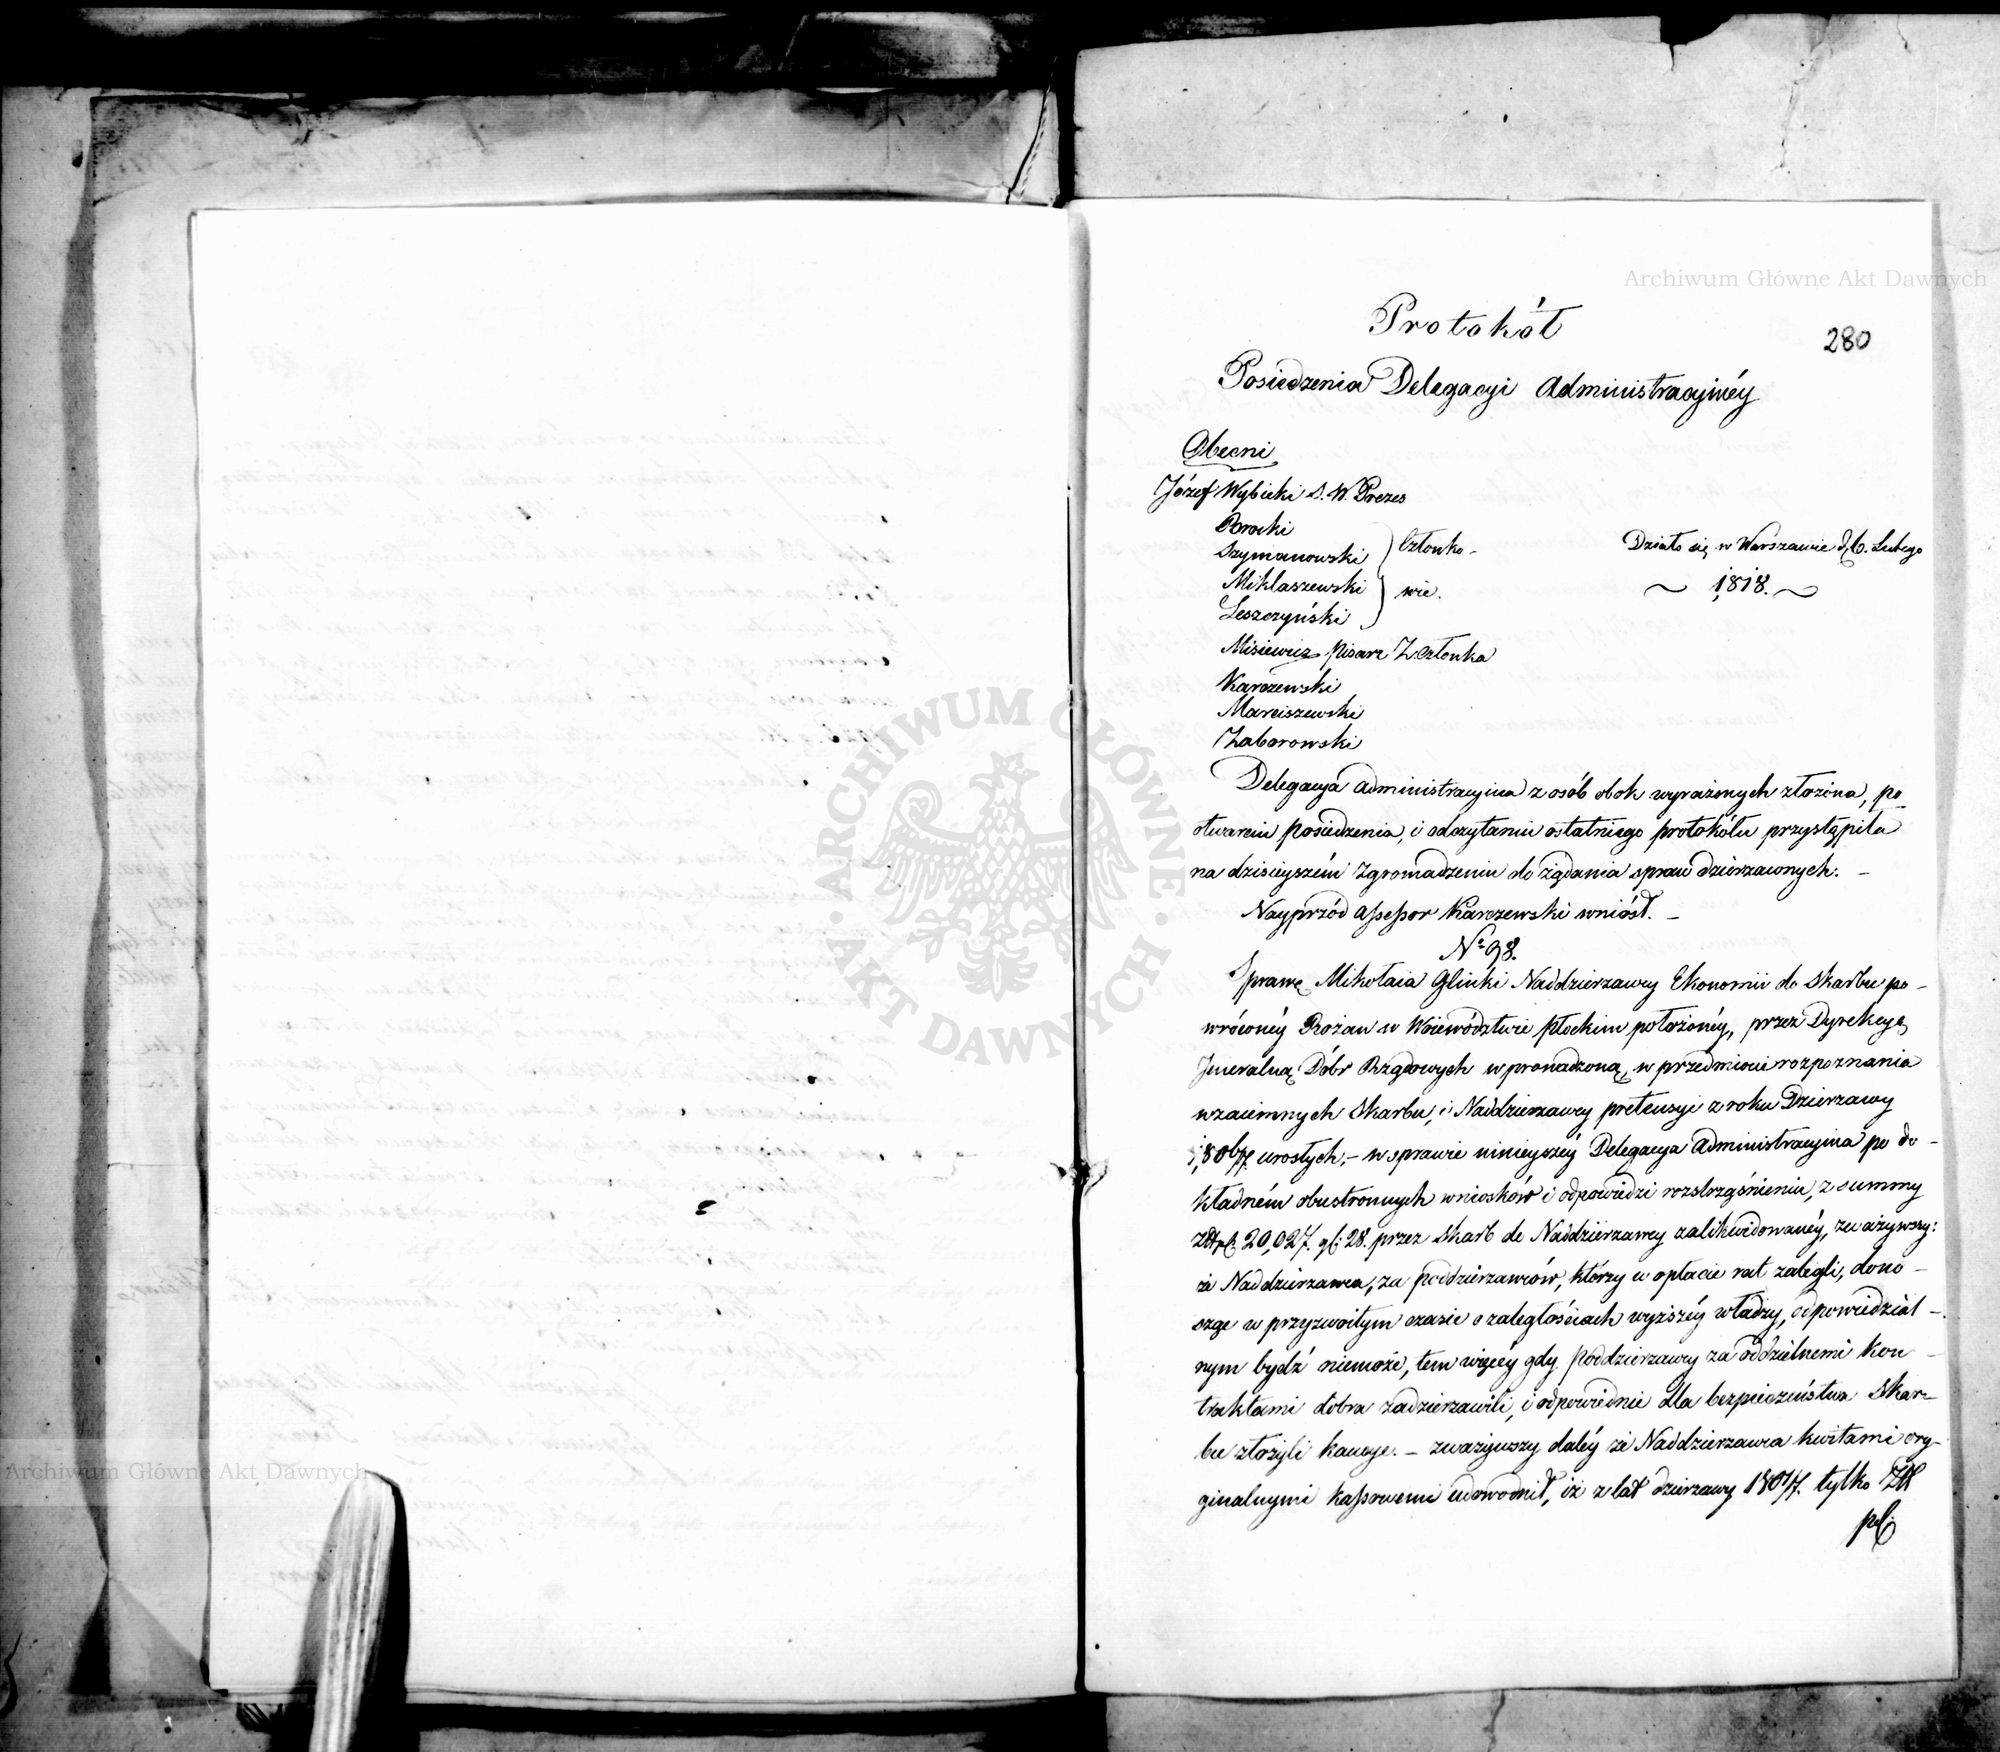 Archiwum Główne Akt Dawnych
Protokół
280
Posiedzenia Delegacyi Administracyinéy
Obecni
Józef Wybicki S. W. Prezes
Szymanowski } Członko-
Miklaszewski } wie.
Leszczyński
Działo się w Warszawie d. 6. Lutego
1818.
Misiewicz Pisarz Z. Członka
Karczewski
Marciszewski
Zaborowski
Delegacya Administracyina z osób obok wyrażonych złożona, po
otwarciu Posiedzenia, i odczytaniu ostatniego protokółu przystąpiła
na dzisieyszém Zgromadzeniu do żądania spraw dzierzawnych. —
Nayprzód Assessor Karczewski wniósł. —
No 98.
Sprawę Mikołaia Glinki Naddzierzawcy Ekonomii do Skarbu po-
wróconéy Rożan w Woiewództwie Płockim położonéy, przez Dyrekcyą
Jeneralną Dóbr Rządowych wprowadzoną, w przedmiocie rozpoznania
wzaiemnych Skarbu, i Naddzierzawcy pretensyi z roku Dzierzawy
1806/7 urosłych; — w sprawie ninieyszéy Delegacya Administracyina po do-
kładném obustronnych wniosków i odpowiedzi rozstrząśnieniu, z summy
Złt pl. 20,027. gl: 28. przez Skarb do Naddzierzawcy zalikwidowanéy, zważywszy:
że Naddzierzawca, za poddzierzawców, którzy w opłacie rat zalegli, dono-
sząc w przyzwoitym czasie o zaległościach wyższéy władzy, odpowiedzial-
nym bydź niemoże, tem więcéy gdy Poddzierzawcy za oddzielnemi Kon-
traktami dobra zadzierzawili, i odpowiednie dla bezpieczeństwa Skar-
bu złożyli kaucye. — zważywszy daléy że Naddzierzawca kwitami ory-
ginalnymi kassowemi udowodnił, iż z lat dzierzawy 1806/7. tylko Złt
pl:
ARCHIWUM GŁÓWNE AKT DAWNYCH
Archiwum Główne Akt Dawnych